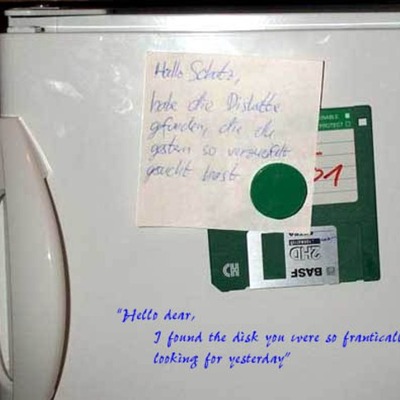 Hallo Schatz,
habe die Diskette
gefunden, die du
gestern so verzweifelt
gesucht hast.
HD
2HD
BASF
"Hello dear,
I found the disk you were so frantically
looking for yesterday"